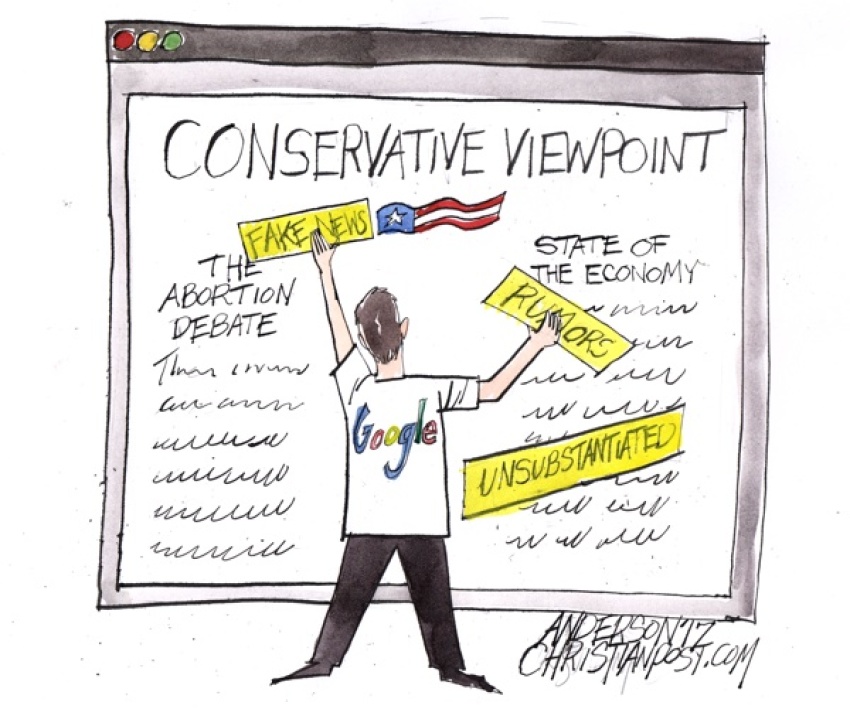 CONSERVATIVE VIEWPOINT
FAKE NEWS
THE
ABORTION
DEBATE
STATE OF
THE ECONOMY
RUMORS
Google
UNSUBSTANTIATED
ANDERSON 17
CHRISTIANPOST.COM